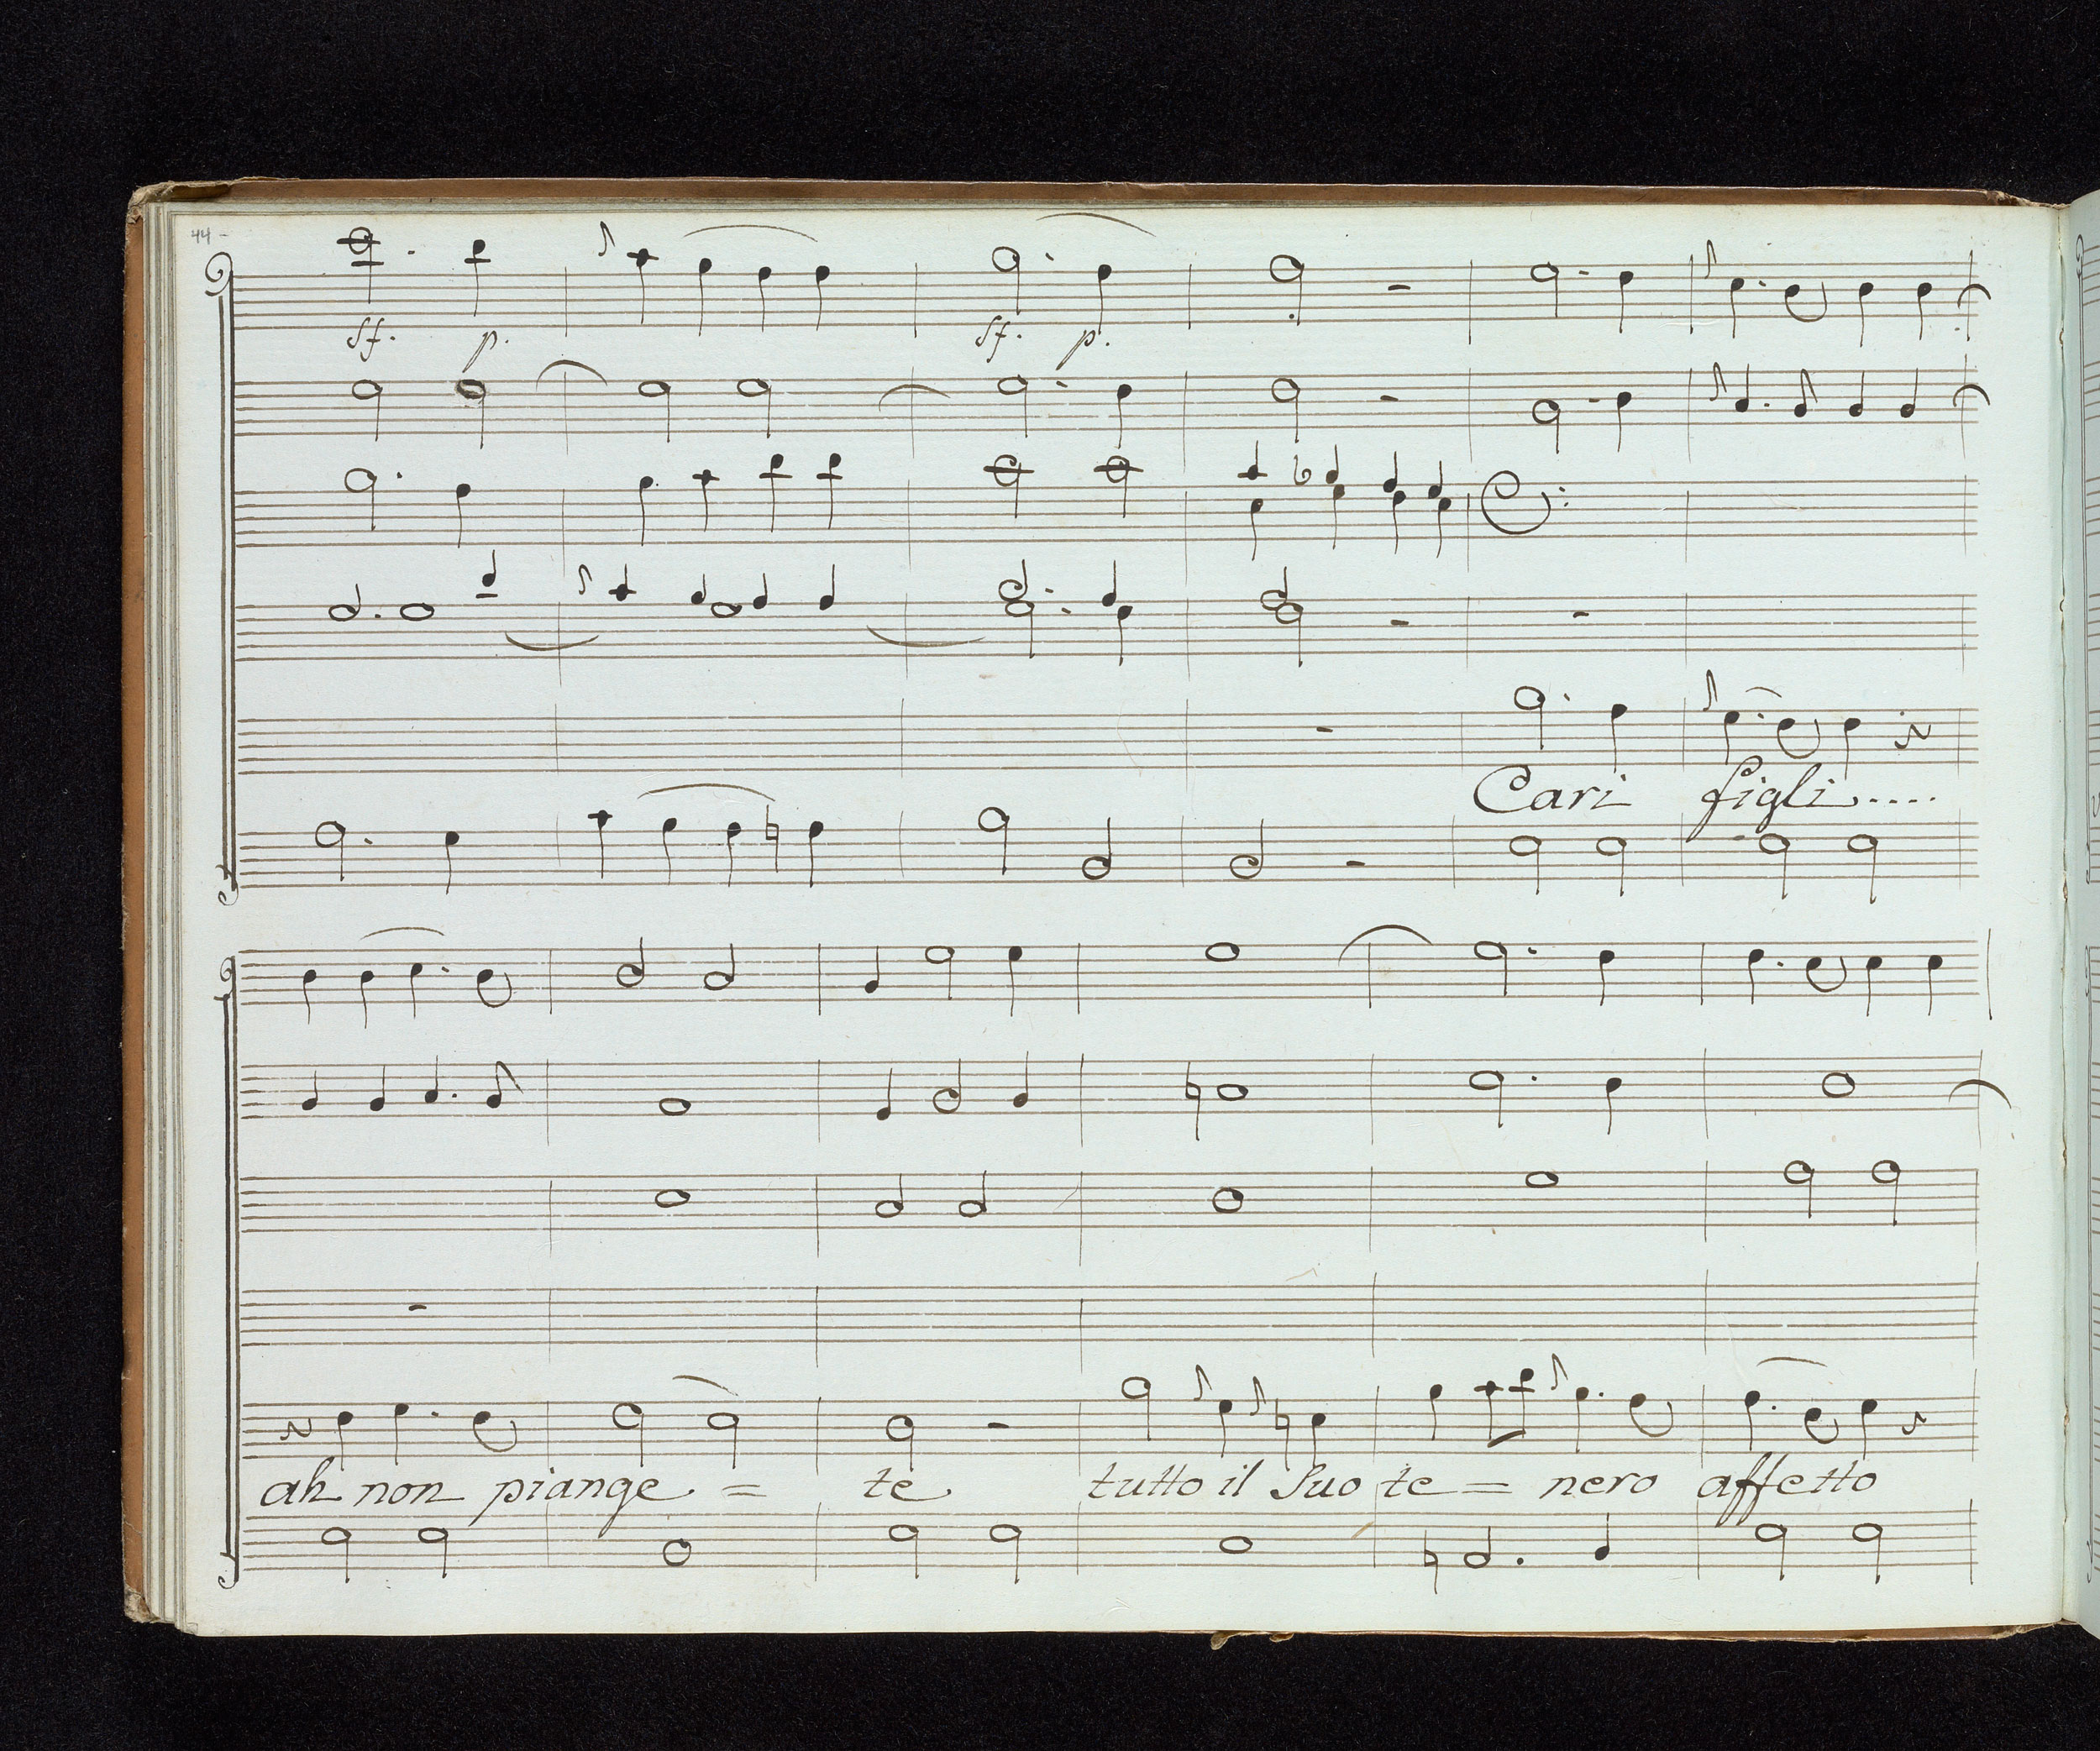 44 -
sf. p. sf. p.
Cari figli.....
ah non piange = te tutto il suo te = nero affetto